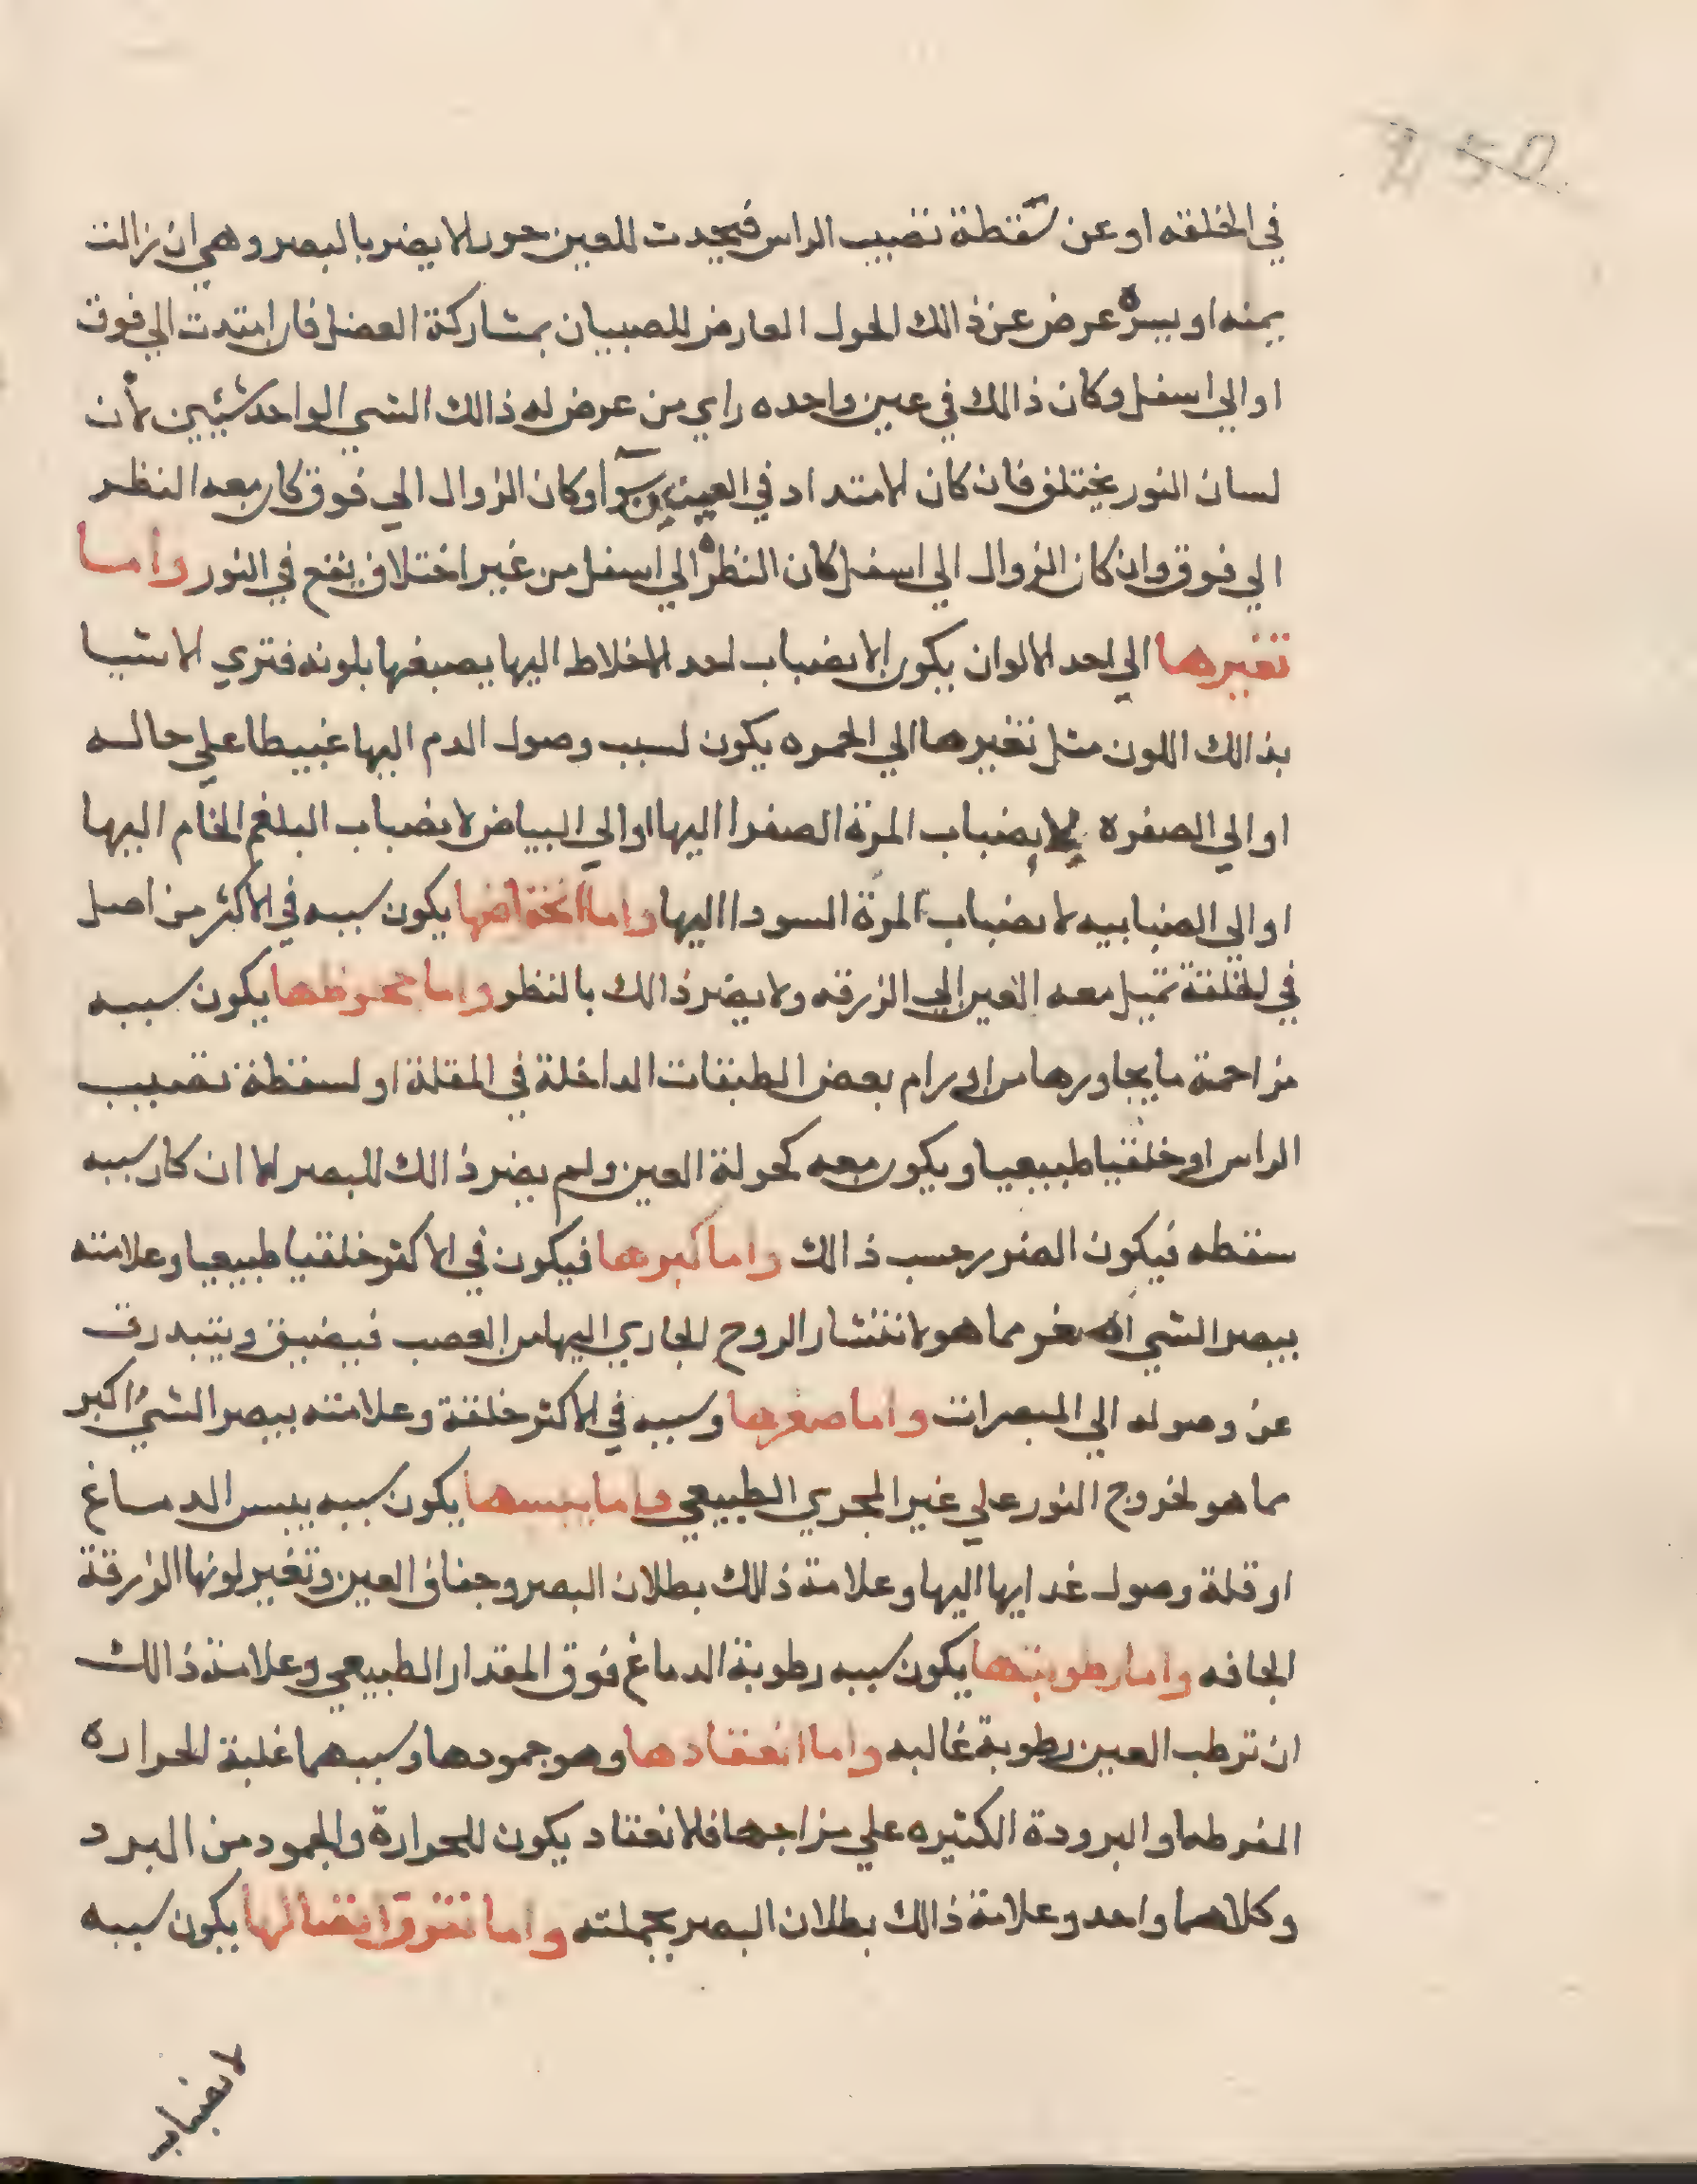 250
في الخلقه او عن سقطة تصيب الراس فيحدث للعين حول لا يضر بالبصر وهي ان زالت
يمنه او يسره عرض عن ذالك الحول العارض للصبيان بمشاركة العضل فان امتدت الي فوق
او الي اسفل وكان ذالك في عين واحده راي من عرض له ذالك الشي الواحد شيئين لأن
لسان النور يختلف فان كان الامتداد في العينين سوا وكان الزوال الي فوق كان معه النظر
الي فوق وان كان الزوال الي اسفل كان النظر الي اسفل من غير اختلاف يقع في النور واما
تغيرها الي احد الالوان يكون لانضباب احد الاخلاط اليها يصبغها بلونه فتري الاشيا
بذالك اللون مثل تغيرها الي الحمره يكون لسبب وصول الدم اليها غبيطا علي حاله
او الي الصفره لانضباب المرة الصفرا اليها او الي البياض لانضباب البلغم الخام اليها
او الي الضبابيه لانضباب المرة السودا اليها واما انخفاضها يكون سببه في الاكثر من اصل
في الخلقة تميل معه العين الي الزرقه ولا يضر ذالك بالنظر واما جحوظها يكون سببه
مزاحمة ما يجاورها من اورام بعض الطبقات الداخلة في المقلة او لسقطة تصيب
الراس او خلقيا طبيعيا ويكون معه كحولة العين ولم يضر ذالك للبصر الا ان كان سببه
سقطه فيكون الضرر حسب ذالك واما كبرها فيكون في الاكثر خلقيا طبيعيا وعلامته
يبصر الشي اصغر مما هو لانتشار الروح الجاري اليها من العصب فيضيق ويتبدرق
عن وصوله الي المبصرات واما صغرها وسببه في الاكثر خلقة وعلامته يبصر الشيء اكبر
مما هو لخروج النور علي غير المجري الطبيعي واما يبسها يكون سببه يبس الدماغ
او قلة وصول غدايها اليها وعلامة ذالك بطلان البصر وجفاف العين وتغير لونها الزرقة
الجافه واما رطوبتها يكون سببه رطوبة الدماغ فوق المقدار الطبيعي وعلامة ذالك
ان ترطب العين رطوبة غالبه واما انعقادها وهو جمودها وسببهما غلبة الحراره
المفرطه او البرودة الكثيره علي مزاجها فالانعقاد يكون للحرارة والجمود من البرد
وكلاهما واحد وعلامة ذالك بطلان البصر بجملته واما تفرق اتصالها يكون سببه
لانضباب